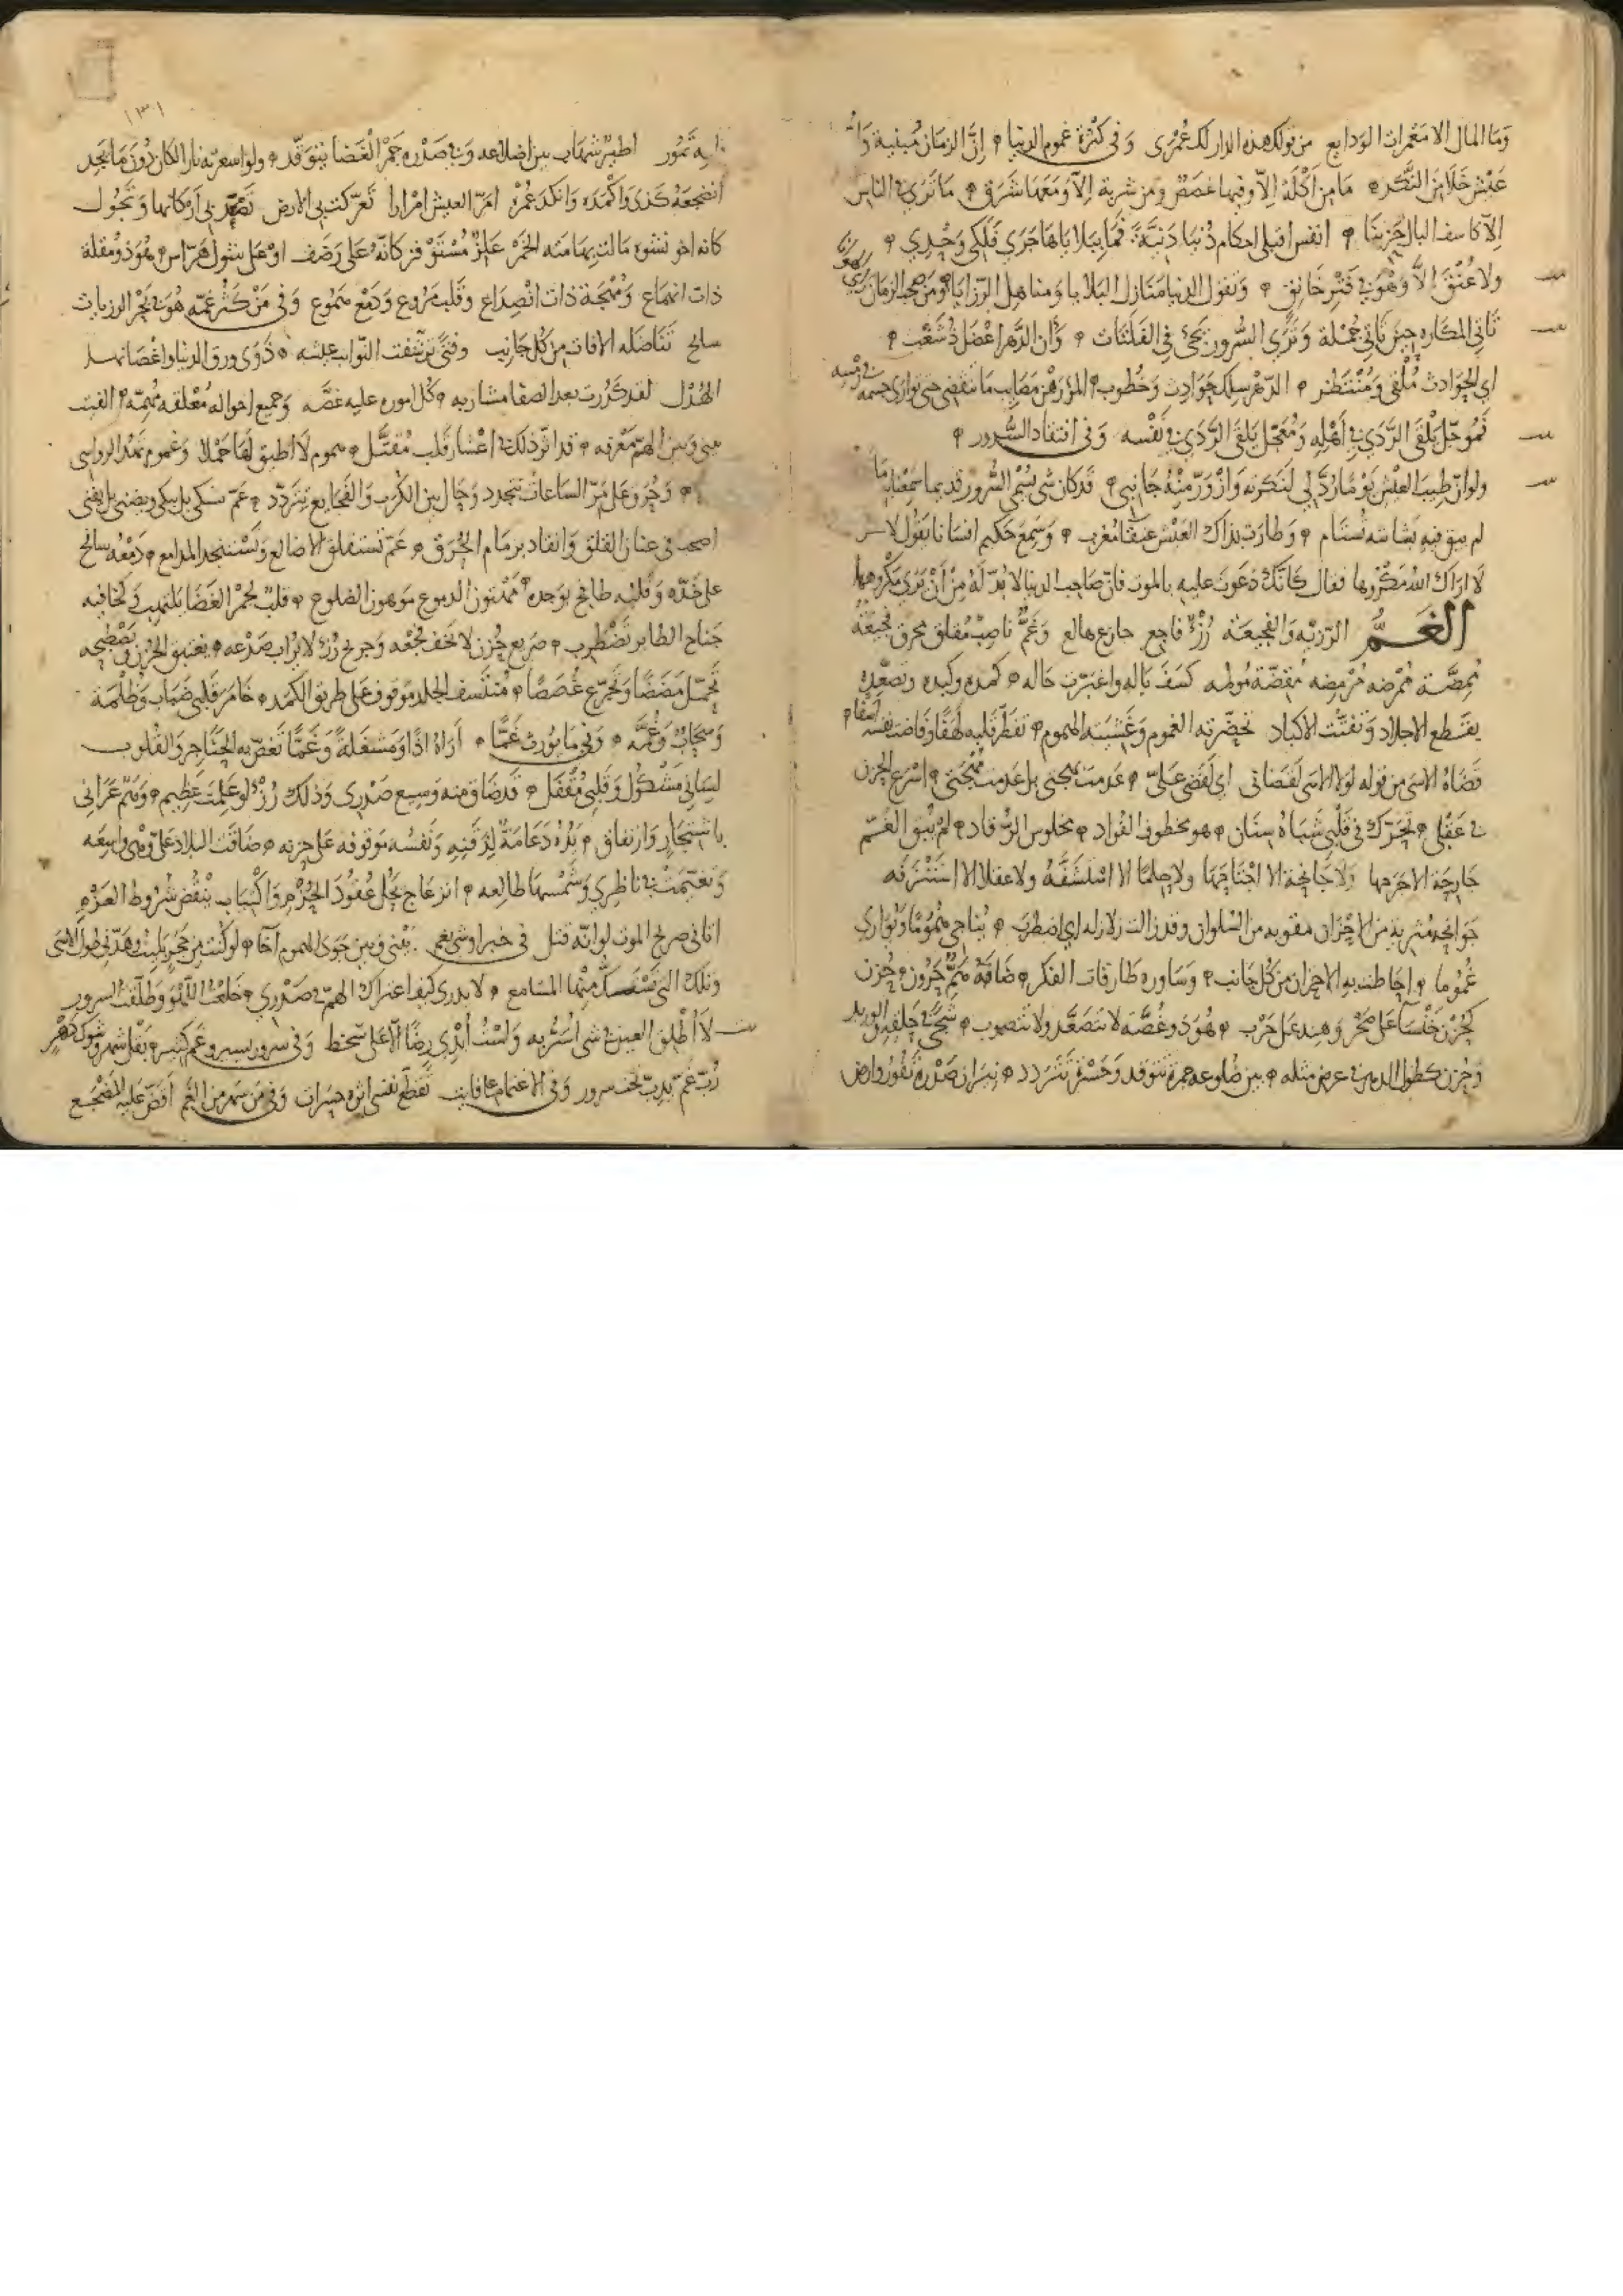 وَمَا المال الا مُعْمرات الودايع من تولك هذه الدار لك عُمْرى وَفى كثرة غموم الدنيا ۴ اِنّ الزمان
عَيْش خَلَا مِنَ النَّكَد ۴ مَا مِن اَكْلَة اِلاّ وفيها غصص ومن شربة اِلاّ وَمَعَها شَرَق ۴ مَا تَرَى الناس
اِلاّ كاسف البال حزينا ۴ انفس قبلى احكام دُنيا دَنيَّة فَمَا ببلاياها جَرَى فَلَكى وَحْدى ۴
ولا عُنُقَ الاّ وَهْوَ فى فتر خانق ۴ وَنقول الدنيا منازل البلايا ومناهل الرّزايا ومن صحب الزمان
تَاتى المكاره حين تَاتى جُمْلة وَتَرَى السُّرور يجىء فى الفَلَتَات ۴ وَاَن الدَّهر
اى الحوادث مُلْقى وَمُنْتَظَر ۴ الدّهر سلك حَوَادِث وَخُطوب ۴ المرء رَهْن مَصَايِب مَا تنقضى حتى يوارى جسمه فى رمسه
فَمُوَجّل يَلقَى الرَّدَى فى اَهْله وَمُعَجّل يَلقَى الرَّدَى فى نَفْسه وَفى افتقاد السُّرور ۴
ولو انّ طِيبَ العَيْش يَوْمًا رُدَّ لى لَنَكرته وَازْوَرّ مِنْهُ جَانبى ۴ قَد كان شى سُمّى السُّرور قديما سَمِعْنا به مَا
لم يبق فيه بَشاشة تُستَام ۴ وَطَارَت بذاك العَيْش عنقا مُغرب ۴ وَسَمِعَ حَكيم انسانا يقول لاخر
لَا اراك الله مَكْرُوها فقال كَاَنّك دَعَوت عليه بالموت فانّ صَاحِب الدنيا لا بُدّ لَهُ مِنْ اَنْ يَرَى مَكْروها
الغَمُّ الرّزيّه وَالفجيعَة رُزْءٌ فاجع جازع هالع وَغَمٌّ ناصِبٌ مُقلق محرق
مُمِضَّة مُمْرضه مُرْمِضه مُقِضّة مُولمه كَسَفَ بَاله واغبرّت حَاله ۴ كمده وكبده
يَقتَطع الاجلاد وَتفتّت الاكباد تحضّرته الغموم وَغَشِيَته الهموم ۴ تفطّر قلبه لَهَفًا وفَاضت نفسه اَسَفًا ۴
قضاهُ الاسَى من قوله لولا الاسَى لقضانى اى لَقَضى عَلىّ ۴ عَدمت مهجتى بل عدمت ۴ اسْرَع الحزن
فى عَقْلى ۴ تحرّك فى قَلْبى شَبَاةُ سِنَان ۴ هو مخطوف الفُؤاد ۴ مخلوس الرُّقاد ۴ لَمْ يُبْقِ الغَمّ
جَارِحَة الا جَرَحها ولَا جَانِحَة الا اجْتَاحَها ولا حلمًا الا اسْتَشَفَّهُ ولا عقلا الا اسْتَنْزَفه
جَوانِحه مُثرية مِن الاحزان مقويه من السُّلوان وقد زالت زلازله اى اضطرَب ۴ يُناجى هُمُومًا وَيُوَارى
غُمُوما ۴ احَاطت به الاحزان من كُلّ جَانب ۴ وَسَاوره طَارقات الفكر ۴ ضَافَهُ هَمٌّ ۴ حُزن
كَحُزْن خَنْسَآ عَلى صَخْر وَهِند عَلى حَرْب ۴ هُوَ ذو غُصَّه لا تتَصَعَّد ولا تتصوب ۴ شَجًى فى حَلقه
وَحُزن كطول الدهر فى عرض مثله ۴ بين ضُلوعه جمرة تَتَوقد وَحَسْرَة تَتردد ۴ نيران صَدْره تَفُور وارض
به تَمُور اطير شهاب بين اضلاعه وَفى صَدْره جَمْر الغَضا يتوقّد ۴ ولو اسعر به نار لكان دُونَ مَا يَجد
كَدَّى وَاَكْمَده وَانكَد عُمْرَه اَمَرّ العيش اِمْرارا تَعَرّكت بى الارض بى اَركانها وَتَحُول
كانه اخو نشوة مالت بهامته الخمر عَلِزٌ مُسْتَوْفز كانّهُ عَلى رَضَف او على شَوْك هَرَاس ۴ هُوَ ذو مُقلة
ذات انهماع وَمُهْجَة ذات انْصِدَاع وقَلب مَرُوع وَدَمْع هَمُوع وَفى مَنْ كَثُرَ غمّه هُوَ فى بحْر الرزيات
سابح تَنَاضَله الافات من كُلّ جَانِب وفتًى رَنَّقت النّوائب عيشه ۴ ذَوَى ورق الدنيا واغصانها
الهُدْل لقد كَدُرت بعد الصفا مشاربه ۴ كُلّ اموره عليه غصّه وَجميع احواله مُقلقه مُهِمّة ۴ الفيت
بينى وبين الهمّ مَعْرفه ۴ قد اثر ذلك فى اعْشار قلب مُقَتَّل ۴ هموم لَا اطيق لَهَا حَمْلا وَغموم تهدّ الرواسى
وَحُزن على مَرّ السَّاعات يتجدد وَحَال بين الكَرْب وَالفجايع يتردّد ۴ غمّ يبكى بل يبكى ويضنى بل يفنى
اصحب فى عنان القلق وَانقاد بزمام الحُرَق ۴ غَمّ تستقلق الاضالع وَتَسْتنجد المدامع ۴ دَمْعُه سافح
على خَدّه وَقلبه طافح بوَجده ۴ مَمْتون الدموع مَوهون الضلوع ۴ قلبٌ بجمْر الغَضَا يلتهب وَكخافيه
جَناح الطاير تضْطرب ۴ صَريع حُزن لا تخف فجعُه وَجَريح رُزْء لا يُرأب صَدْعه ۴ يغتبق الحُزن ويَصْطبحه
تَحَمّل مَضَضًا وَتجرّع غُصَصًا ۴ مُنتسف الجلد مَوقوف عَلى طريق الكمد ۴ خَامَرَ قَلبى ضَبَاب وَظُلْمة
وَسَحَابٌ وَغُمَّه ۴ وَفى مَا يُورث غَمًّا ۴ اَرَاهُ اذًا وَمَشغَلَةً وَغَمًّا تَغصّ به الحَنَاجر وَالقُلوب
لِسَانى مَشْكُول وَقَلبى مُقْفَل ۴ قَد ضَاق منه وَسِيع صَدْرى وَذلك رُزْءٌ لو عَلمْتَ عَظيم ۴ وهَمّ عَرَانى
باشْتجار وَارتفاق ۴ يَدُهُ دَعَامَةٌ لِذقنه وَنَفسُه مَوقوفه على حزنه ۴ ضَاقَت البلاد عَلىّ وهى واسِعَه
وَتغيّمَتْ فى ناظرى وَشَمْسها طالعه ۴ انزعَاج يَحُل عُقُودَ الحَزْم وَاكْتئاب يَنْقُض شُروط العَزْم
اتانى صَريح الموت لو انّه قتل فى خبر اوشى بغم بينى وبين جَوى الهموم آخَا ۴ لو كُنْت من حَجَرٍ بَليتُ وهَدّنى طول الاسَى
وَتلك التى تَسْتَكّ مِنْها المسَامع ۴ لا يدرى كَيف اعتراك الهمّ فى صَدْرى ۴ خَلَعْت اللَّهْو وَطَلّقت السرور
لاَ اُطْلِق العين فى شى اُسَرُّ به وَلَسْتُ اُبْدى رِضًا الاّ عَلى سَخط وَفى سرور يسير وغمّ كثير ۴ بَقل شهر وشوك دَهْر
رُبّ غَمّ يَدبّ تحت سرور وَفى الاغتمام عافات تَقَطّع نفسى اثره حسرات وَفى مَن سَهِرَ من الغمّ اَقَضّ عليه المَضْجَع